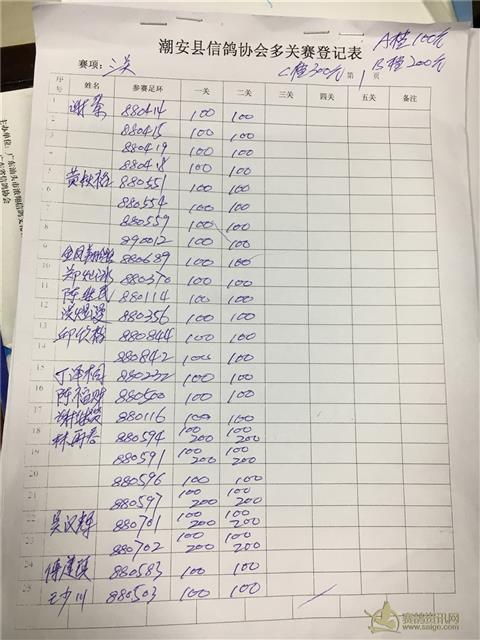 潮安县信鸽协会多关赛登记表
A档100元
赛项：
C档300元 第1页
B档200元
序号 姓名 参赛足环 一关 二关 三关 四关 五关 备注
1 谢 880414 100 100
2 880415 100 100
3 880419 100 100
4 880418 100 100
5 黄 880551 100 100
6 880554 100 100
7 880559 100 100
8 890012 100 100
9 880689 100 100
10 郑 880370 100 100
11 陈 880114 100 100
12 880356 100 100
13 邱 880844 100 100
14 880842 100 100
15 丁泽桐 880232 100 100
16 陈福财 880500 100 100
17 谢 880116 100 100
18 林 880594 100 200 100 200
19 880591 100 200 100 200
20 880596 100 100
21 880597 100 200 100 200
22 吴汉辉 880701 100 200 100 200
23 880702 100 200 100 200
24 880583 100 100
25 王少川 880503 100 100
广东省信鸽协会
赛鸽资讯网
www.saige.com